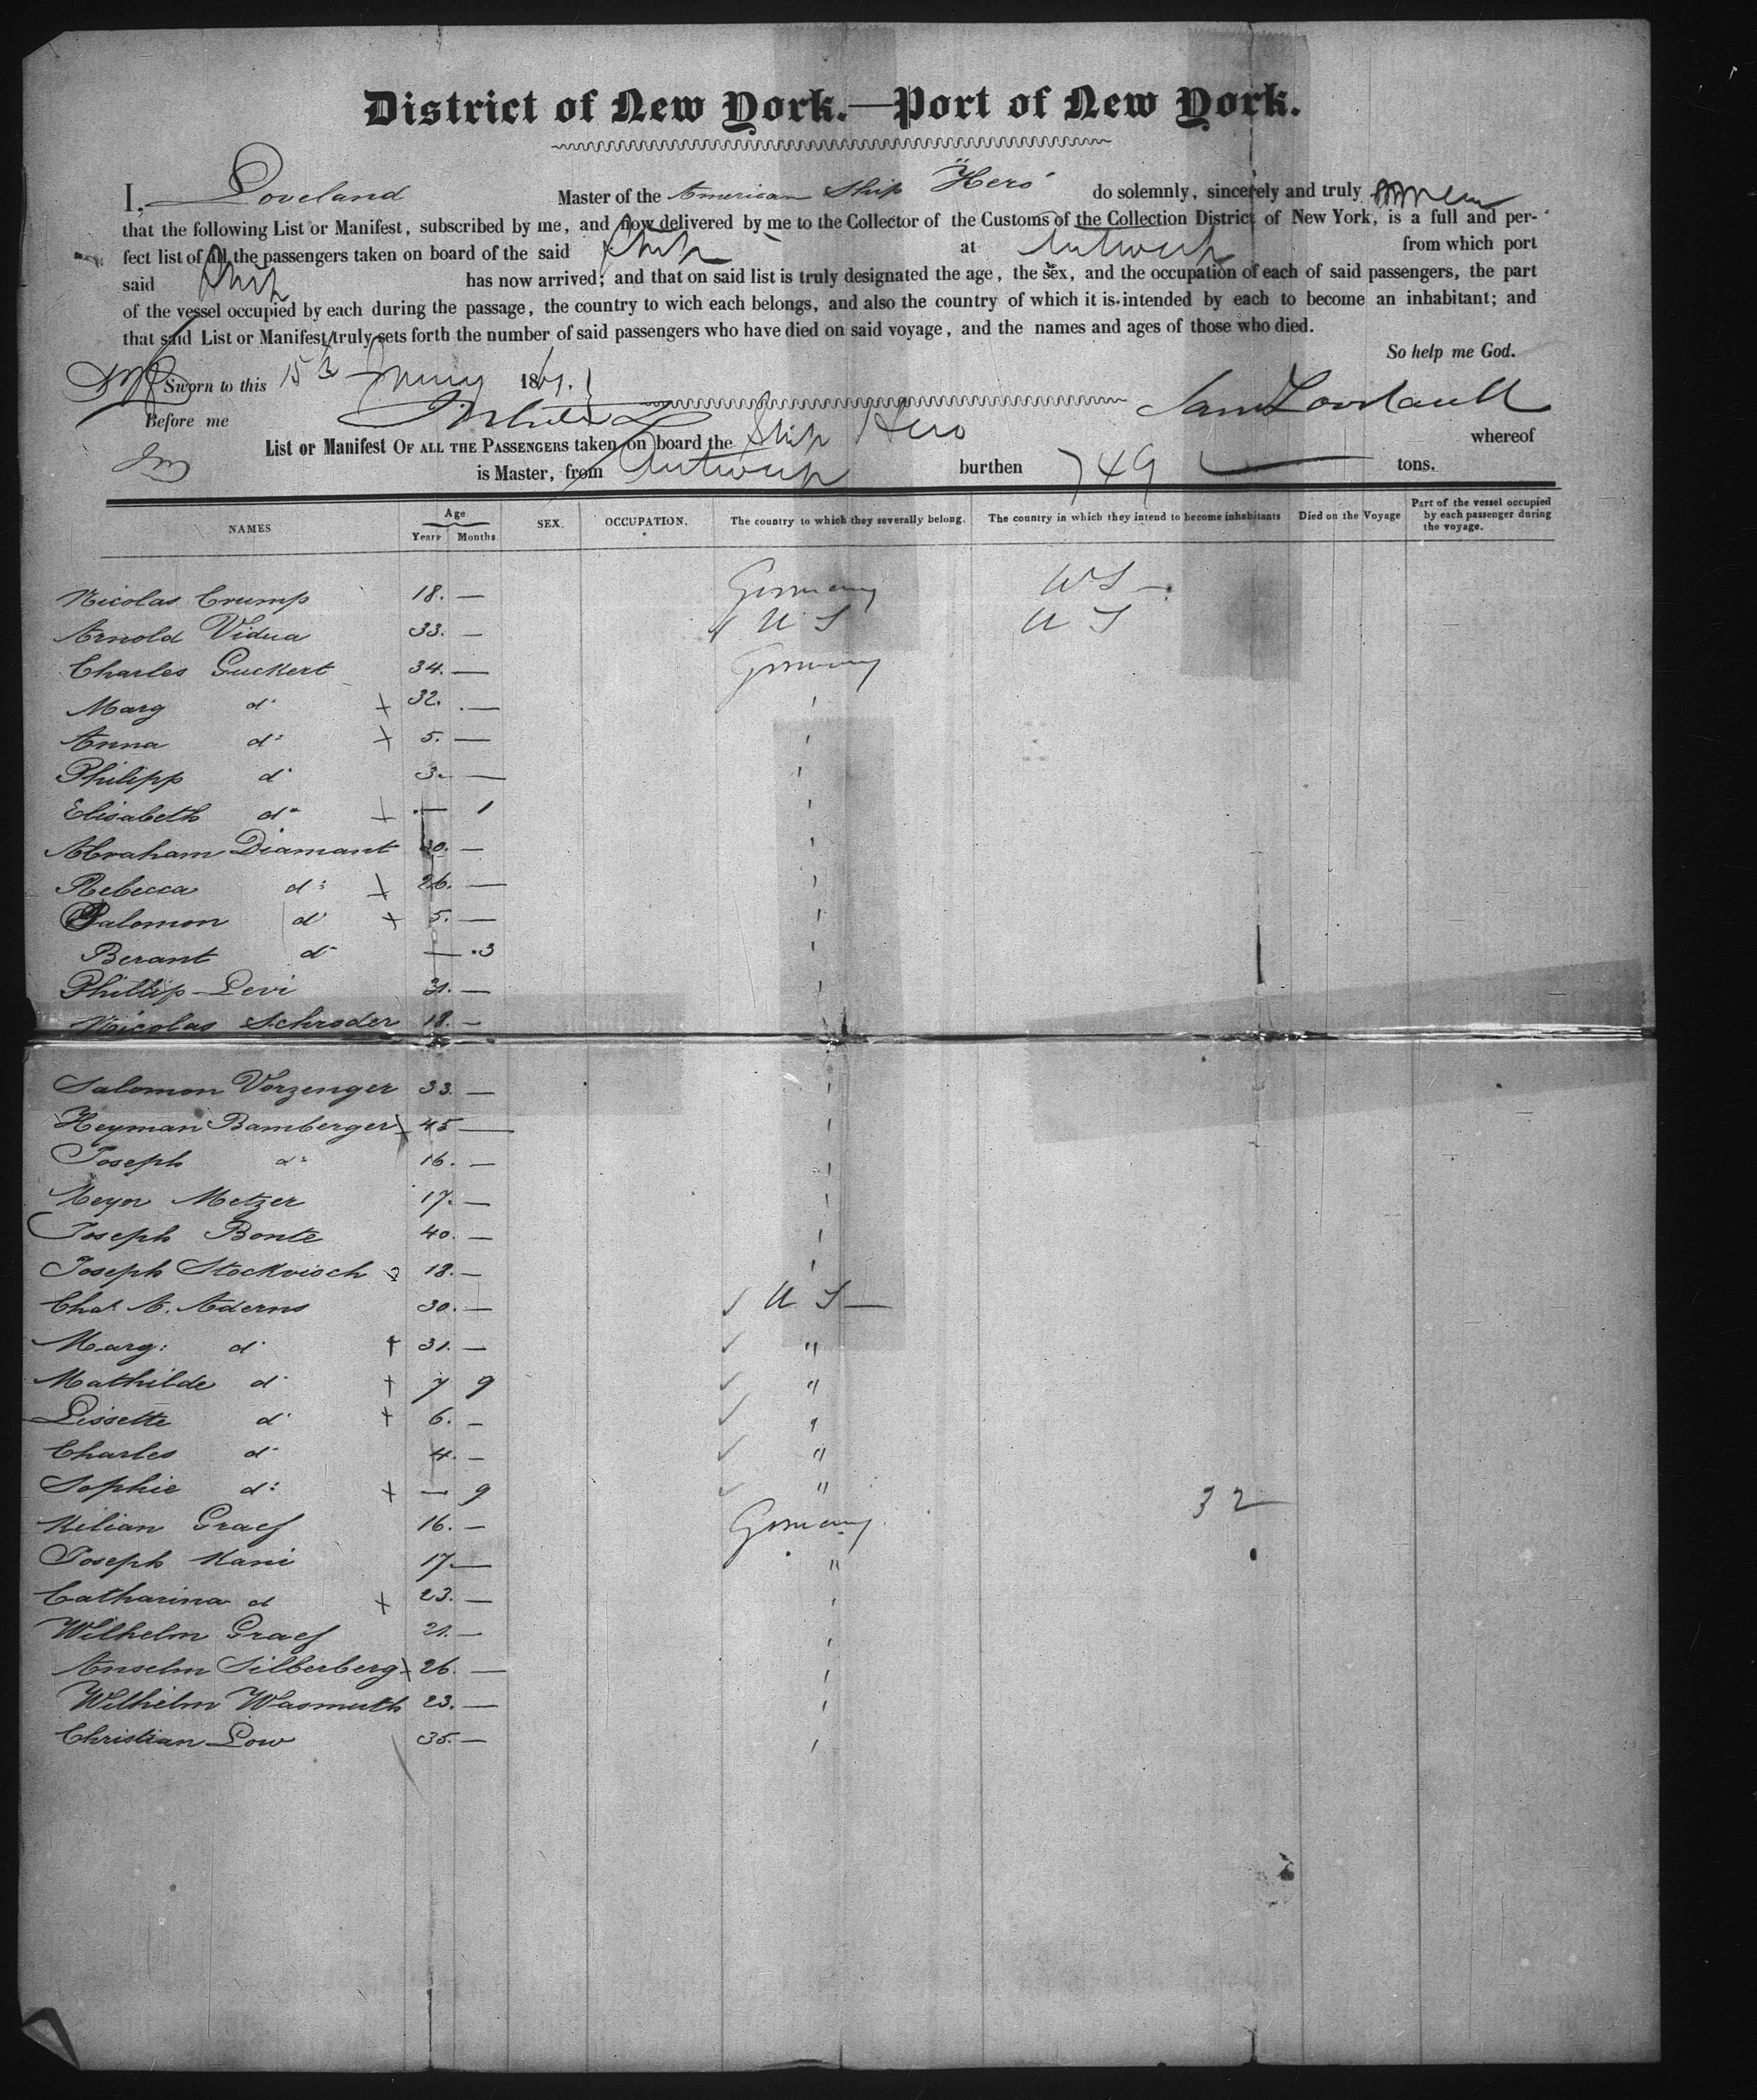 District of New York.—Port of New York.
I, Loveland Master of the American Ship "Hero" do solemnly, sincerely and truly
that the following List or Manifest, subscribed by me, and now delivered by me to the Collector of the Customs of the Collection District of New York, is a full and per-
fect list of all the passengers taken on board of the said Ship at Antwerp from which port
said Ship has now arrived; and that on said list is truly designated the age, the sex, and the occupation of each of said passengers, the part
of the vessel occupied by each during the passage, the country to wich each belongs, and also the country of which it is intended by each to become an inhabitant; and
that said List or Manifest truly sets forth the number of said passengers who have died on said voyage, and the names and ages of those who died.
So help me God.
Sworn to this 15th 18
Before me
List or Manifest OF ALL THE PASSENGERS taken on board the Ship Hero whereof
is Master, from Antwerp burthen 749 tons.
NAMES Age Years Months SEX. OCCUPATION. The country to which they severally belong. The country in which they intend to become inhabitants Died on the Voyage Part of the vessel occupied by each passenger during the voyage.
Nicolas Crump 18. — Germany U S —
Arnold Vidua 33. — U S U S
Charles Guckert 34. — Germany
Marg do + 32. — '
Anna do + 5. — '
Philipp do 3. — '
Elisabeth do + — 1 '
Abraham Diamant 30. — '
Rebecca do + 26. — '
Salomon do + 5. — '
Berant do — 3 '
Phillip Levi 31. — '
Nicolas Schroder 18. —
Salomon Vorzenger 33. — '
Heyman Bamberger + 45 — '
Joseph do 16. — '
Meyer Metzer 17. — '
Joseph Bonte 40. — '
Joseph Stockvisch 18. — '
Chas. A. Aderns 30. — U S —
Marg: do + 31. — "
Mathilde do + 7 9 "
Lissette do + 6. — "
Charles do 4. — "
Sophie do + — 9 " 32
Kilian Graef 16. — Germany
Joseph Kani 17. — "
Catharina do + 23. — '
Wilhelm Graef 21. — '
Anselm Silberberg + 26. — '
Wilhelm Wasmuth 23. — '
Christian Low 35. — '